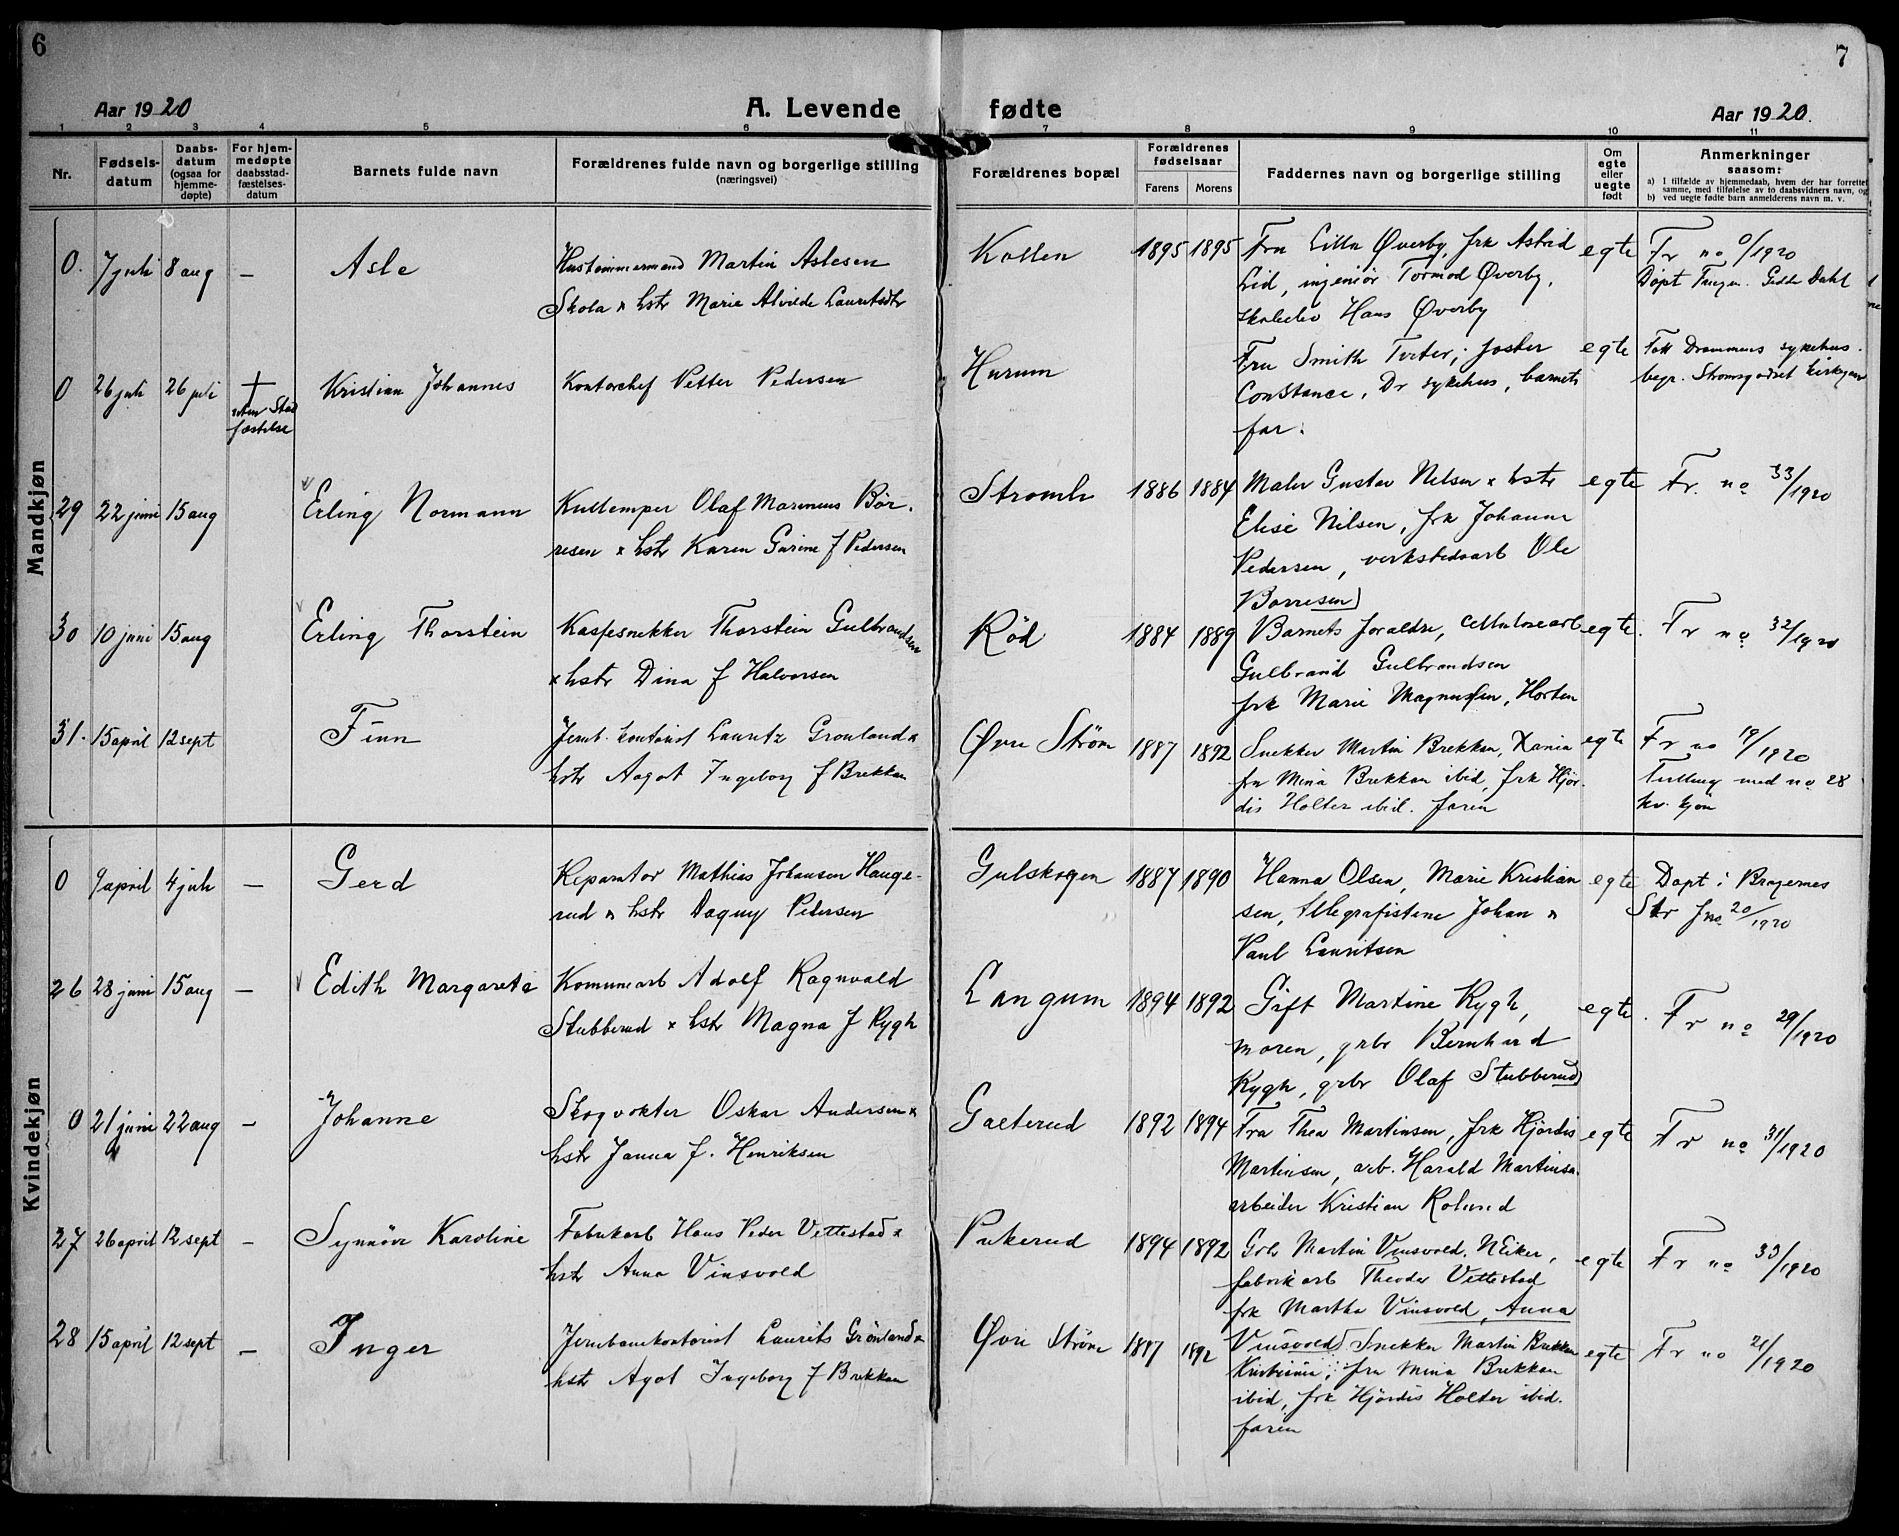 6
7
Aar 1920
A. Levende fødte
Aar 1920.
1 2 3 4 5 6 7 8 9 10 11
Nr.
Fødsels-
datum
Daabs-
datum
(ogsaa for
hjemme-
døpte)
For hjem-
medøpte
daabsstad-
fæstelses-
datum
Barnets fulde navn
Forældrenes fulde navn og borgerlige stilling
(næringsvei)
Forældrenes bopæl
Forældrenes
fødselsaar
Farens Morens
Faddernes navn og borgerlige stilling
Om
egte
eller
uegte
født
Anmerkninger
saasom:
a) I tilfælde av hjemmedaab, hvem der har forrettet
samme, med tilføielse av to daabsvidners navn, og
b) ved uegte fødte barn anmelderens navn m. v.
Mandkjøn
0. 7 juli 8 aug – Asle
Hustømmermand Martin Aslesen
Skola x hstr Marie Alvilde Lauritsdtr
Kollen 1895 1895
Fru Lilla Øverby, frk Astrid
Lid, ingeniør Tormod Øverby,
skoleelev Hans Øverby
egte
Fr no 0/1920
Døpt Dahl
0 26 juli 26 juli † uten Stad
fæstelse
Kristian Johannes
Kontorchef Petter Pedersen
Hurum
Fru Smith Tveter, søster
Constance, Dr sykehus, barnets
far.
egte
Drammens sykehus.
begr. Strømsgodset kirkegaard
29 22 juni 15 aug Erling Normann
Olaf Marinius Bør-
resen x hstr Karen Gurine f Pedersen
Strømh 1886 1884
Maler Gustav Nilsen x hstr
Elise Nilsen, frk Johanne
Pedersen, verkstedsarb Ole
Borresen)
egte
Fr. no 33/1920
30 10 juni 15 aug Erling Thorstein
Kassesnekker Thorstein Gulbrandsen
x hstr Dina f Halvorsen
Rød 1884 1889
Barnets foraldre, cellulosearb
Gulbrand Gulbrandsen
frk Marie Magnussen, Horten
egte.
Fr no 32/1920
31. 15 april 12 sept Finn
Jernb. kontorist Lauritz Gronland x
hstr Aagot Ingeborg f Brekkan
Øvre Strøm 1887 1892
Snekker Martin Brekkan, Xania
fru Mina Brekkan ibid, frk Hjør-
dis Holter ibid. faren
egte
Fr no 19/1920
Tvilling med no 28
kv. kjøn
Kvindekjøn
0 9 april 4 juli – Gerd
Reparatør Mathias Johansen Hauge-
rud x hstr Dagny Pedersen
Gulskogen 1887 1890
Hanna Olsen, Marie Kristian
sen, tellegrafistene Johan x
Paul Lauritsen
egte
Døpt i Bragernes
Str fno 20/1920
26 28 juni 15 aug – Edith Margarete
Komunearb Adolf Ragnvald
Stubberud x hstr Magna f Rygh
Langum 1894 1892
Gift Martine Rygh,
moren, grbr Bernhard
Rygh, grbr Olaf Stubberud)
egte.
Fr no 29/1920
0 21 juni 22 aug – Johanne
Skogvokter Oskar Andersen x
hstr Janna f. Henriksen
Galterud 1892 1894
Fru Thea Martinsen, frk Hjørdis
Martinsen, arb. Harald Martinsen
arbeider Kristian Rolund
egte
Fr no 31/1920
27 26 april 12 sept – Synnøve Karoline
Fabrikarb Hans Peder Vettestad x
hstr Anna Vinsvold
Pukerud 1894 1892
Grbr Martin Vinsvold. NEiker,
fabrikarb Theodor Vettestad
frk Martha Vinsvold, Anna
Vinsvold)
egte
Fr no 33/1920
28 15 april 12 sept – Inger
Jernbanekontorist Laurits Grönland x
hstr Agot Ingeborg f Brekkan
Øvre Strøm 1887 1892
Snekker Martin Brekkan
Kristiania, fru Mina Brekkan
ibid, frk Hjørdis Holter ibid.
faren
egte
Fr no 21/1920